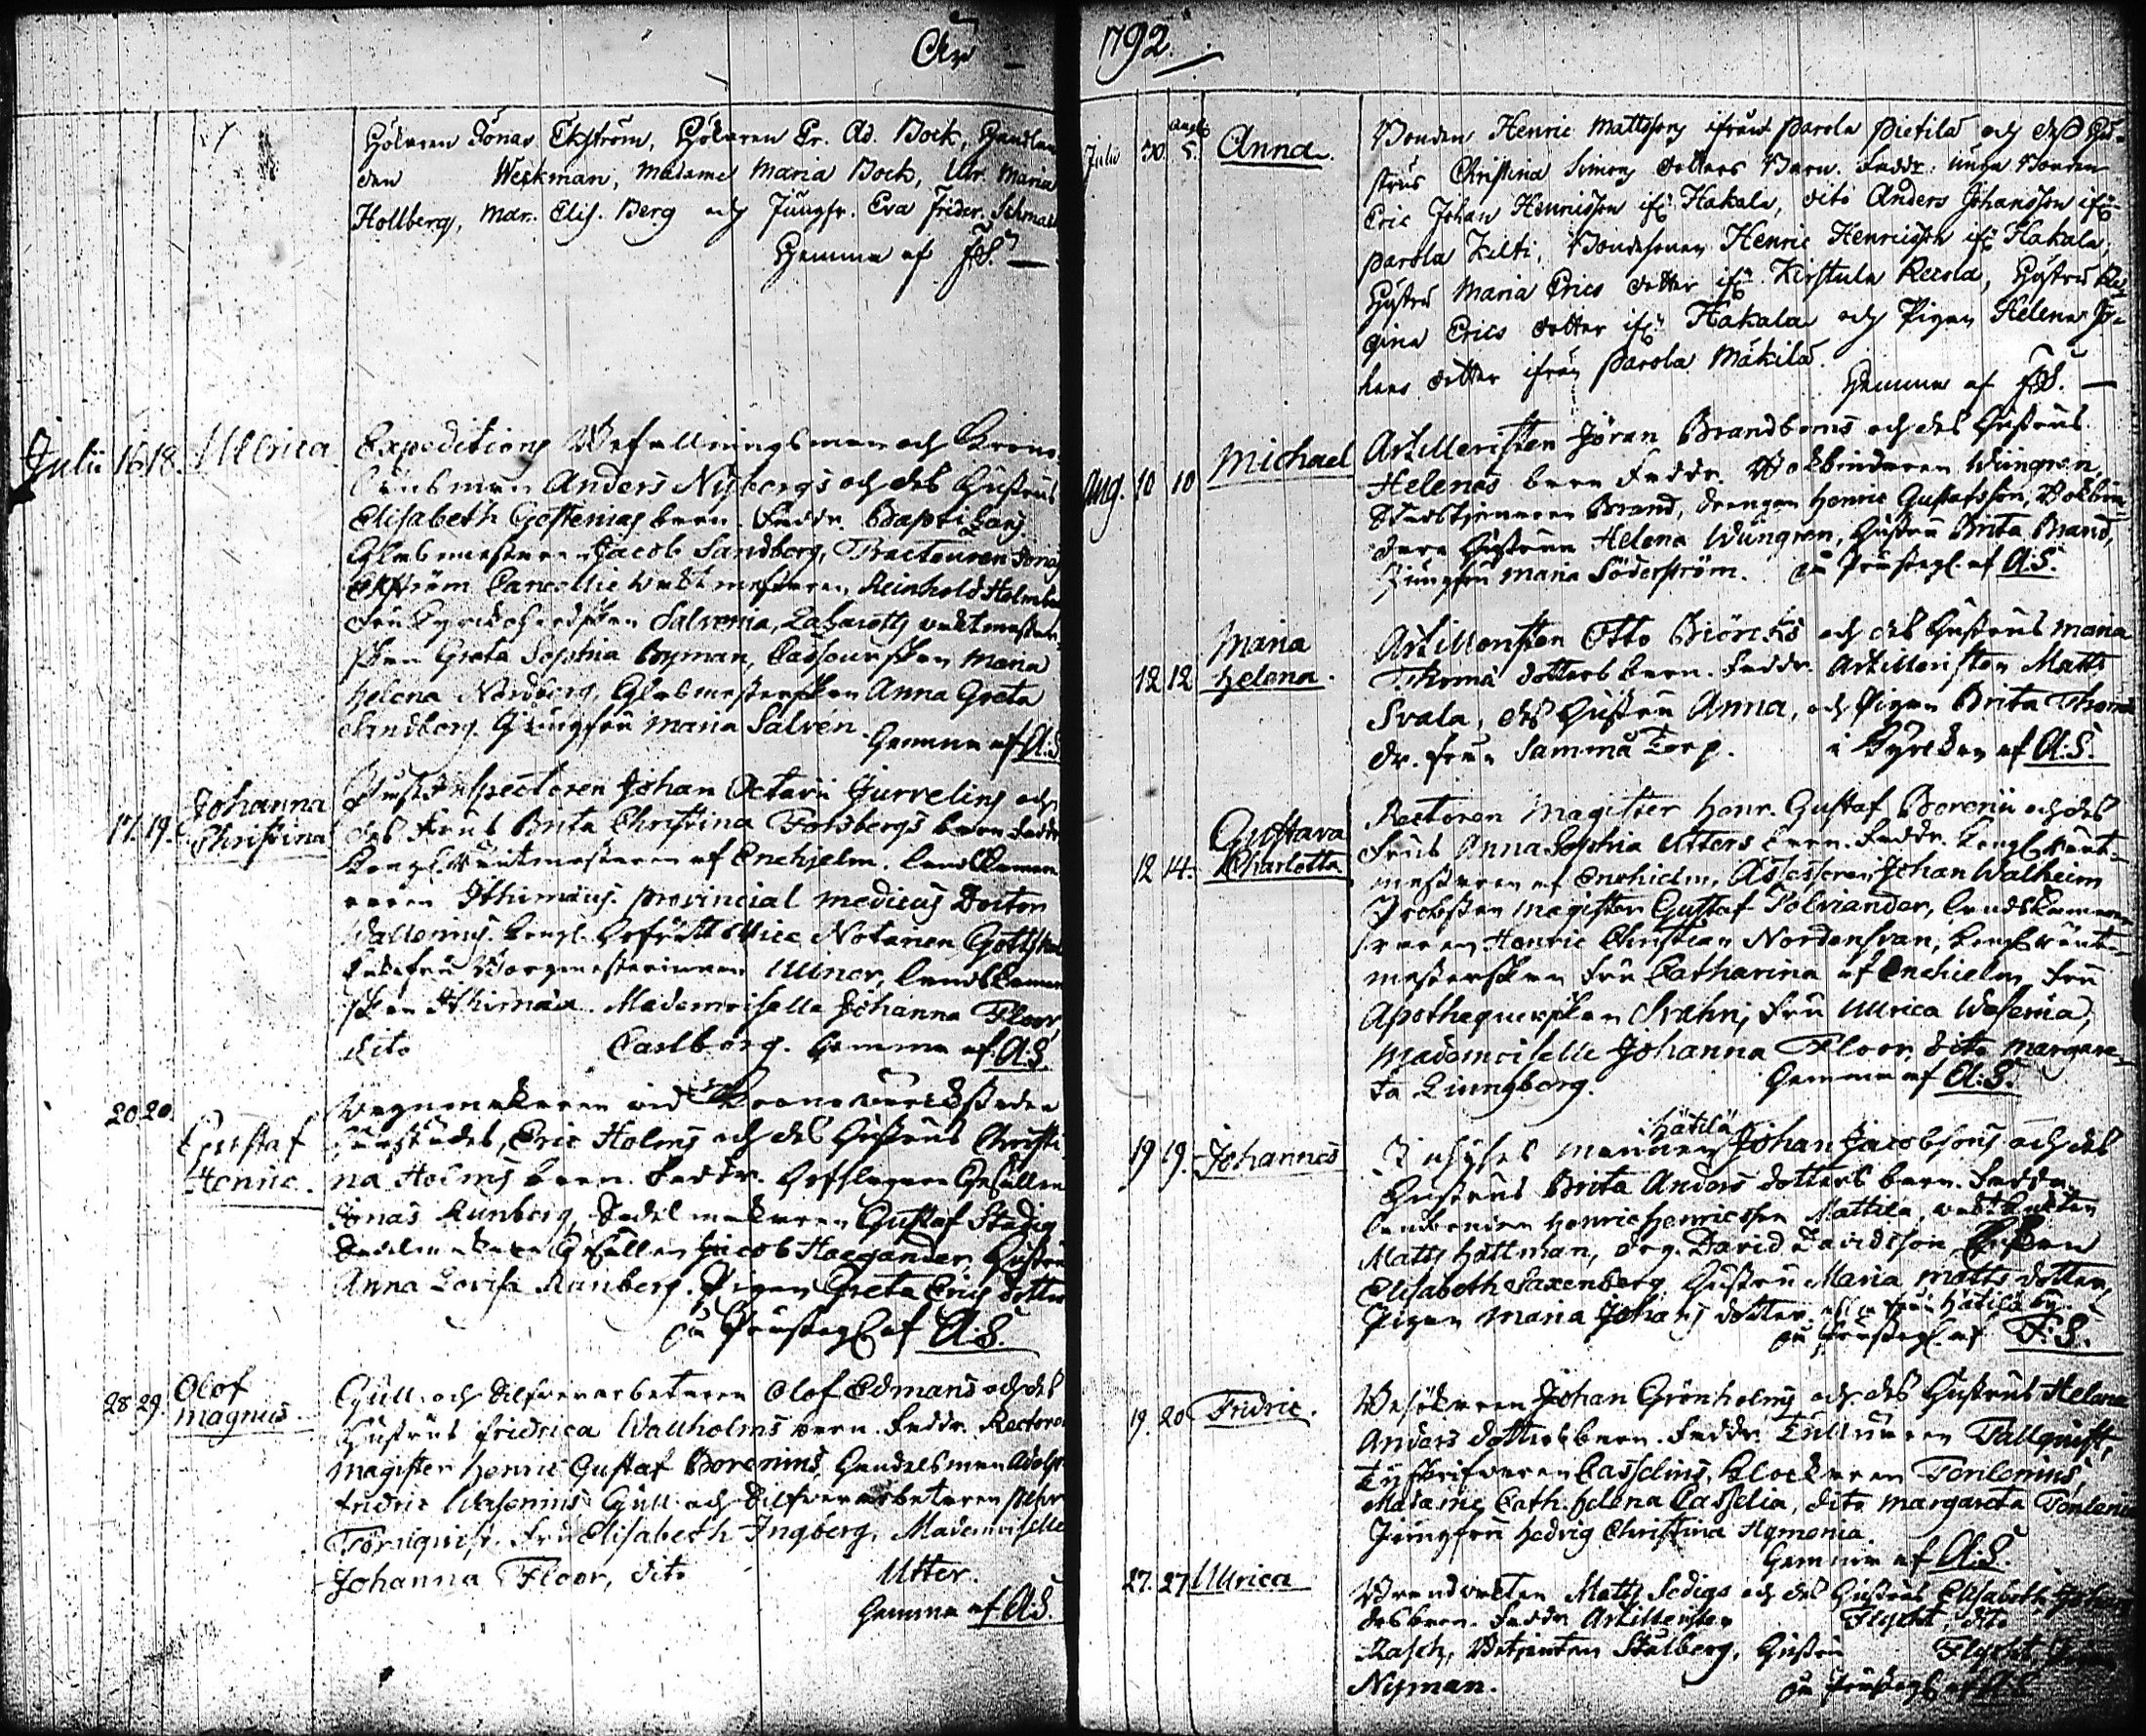 År
Hökaren Jonas Ekström, Hökaren Er. Ad. Bock, Handlan
den Weckman, Madame Maria Bock, Ulr. Maria
Hollberg, Mar. Elis. Berg och Jungfr. Eva Frider.
Hemma af
Julii 16 18. Ulrica
Expeditions Befallningsman och Krono
Länsman Anders Nybergs och des Hustrus
Elisabeth barn. Faddr.
Glasmästaren Jacob Sandberg, Tracteuren Jonas
Ekström Cancellie Vaktmästaren Reinhold Holmber
Salvenia, vaktmästar
skan Greta Sophia Byman, Maria
Helena Nordberg, Glasmästerskan Anna Greta
Sandberg. Jungfru Maria Salvén.
Hemma af A.S.
17. 19. Johanna
Christina
Inspectoren Johan Octavii och
des Frus Brita Christina Forsbergs barn Faddr
Kongl. Räntmästaren af Enehjelm. Landskamre
raren Ithimæus. Provincial Medicus Doctor
Wallenius. Kongl. Hofrätts Vice Notarien
Borgmästarinnan Ulner, Landskamre
skan Ithimæa. Mademoiselle Johanna Floor,
dito Carlborg. Hemma af A.S.
20 20. Gustaf
Henric.
Vagnmakaren vid Krono
Eric Holms och des Hustrus Christi
na Holms barn. Faddr. Hofslagare Gesällen
Jonas Runberg, Sadelmakaren Gustaf Stadig
Sadelmakare Gesällen Jacob Haegander, Hustru
Anna Lovisa Runberg. Pigan Greta Erics dotter
På Prästeg. af A.S.
28 29. Olof
Magnus
Gull och Silfverarbetaren Olof Edmans och des
Hustrus Fridrica Wallholms barn. Faddr. Rectoren
Magister Henric Gustaf Borenius, Handelsman Adolph
Fridric Wasenius Gull och Silfverarbetaren Pehr
Törnquist. Fru Elisabeth Ingberg, Mademoiselle
Johanna Floor, dito Utter.
Hemma af A.S.
1792.
Julii 30. Aug. 5. Anna.
Bonden Henric Mattssons ifrån Parola Pietilä och dess Hu-
strus Christina Simons dotters Barn. Faddr. unga Bonden
Eric Johan Henricsson ifr. Hakala, dito Anders Johansson ifr.
Parola Kilti, Bondsonen Henric Henricsson ifr. Hakala,
Hustru Maria Erics dotter ifr. Kirstula, Hustru Re
gina Erics dotter ifr. Hakala och Pigan Helena Jo-
hans dotter ifrån Parola Mäkilä.
Hemma af
Aug. 10 10 Michael
Artilleristen Jöran Brandboms och des Hustrus
Helenas barn Faddr. Bokbindaren Wüngren,
Brand, drengen Henric Gustafsson, Bokbin-
dare Hustrun Helena Wüngren, Hustru Brita Brand,
Jungfru Maria Söderström. På Prästeg. af A.S.
12 12 Maria
Helena.
Artilleristen Otto Biörcks och des Hustrus Maria
Thomæ dotters barn. Faddr. Artilleristen Matts
Svala, des Hustru Anna, och Pigan Brita Thomæ
dr. från Samma Torp. i Kyrckan af A.S.
12 14. Gustava
Charlotta
Rectoren Magister Henr. Gustaf Borenii och des
Frus Anna Sophia Utters barn. Faddr. Kongl. Ränt-
mästaren af Enehielm, Assessoren Johan Walheim
Prosten Magister Gustaf Polviander, Landskamre
raren Henric Christian Nordensvan, Kongl. Ränt-
mästerskan Fru Catharina af Enehielm, Fru
Apothequerskan Svahn, Fru Ulrica Wasenia,
Mademoiselle Johanna Floor, dito Margare-
ta Liungberg. Hemma af A.S.
19 19. Johannes
Hätilä
Inhyses mannen Johan Jacobsons och des
Hustrus Brita Anders dotters barn. Faddr.
Landbonden Henric Henricsson Mattila,
Matts Hättman, drg. David Davidsson,
Elisabeth Saxenberg, Hustru Maria Matts dotter,
Pigan Maria Johans dotter, alla från Hätilä by.
På Prästeg. af F.S.
19. 20 Fridric.
Besökaren Johan Grönholms och des Hustrus Helena
Anders dotters barn. Faddr. Tullnären Tallquist,
Casselius, Klockaren Tonlenius,
Madame Cath. Helena Casselia, dito Margareta Tonlenia
Jungfru Hedvig Christina Hemonia
Hemma af A.S.
27. 27 Ulrica
Brandvakten Matts Sedigs och des Hustrus Elisabeth
barn. Faddr. Artilleristen Flycht, dito
Rasch, Stålberg, Hustru Flycht,
Nyman. På Prästeg. af A.S.